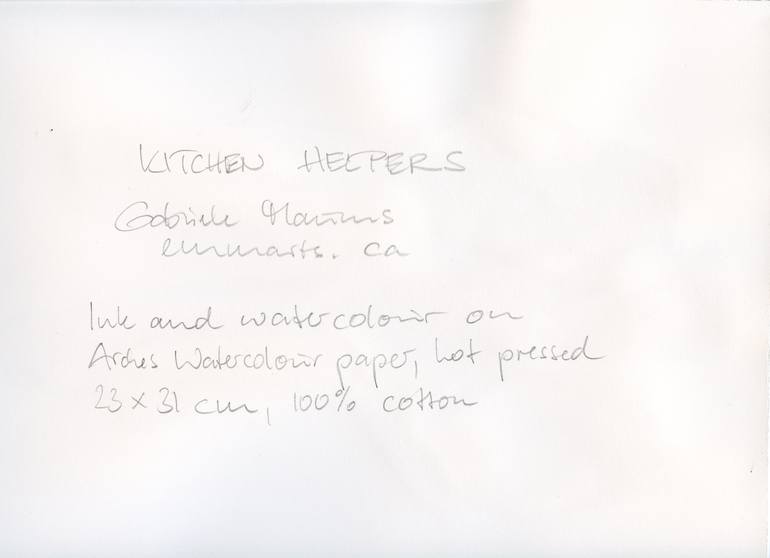 KITCHEN HELPERS
Gabriele
emmarts.ca
Ink and watercolour on
Arches Watercolour paper, hot pressed
23 x 31 cm, 100% cotton